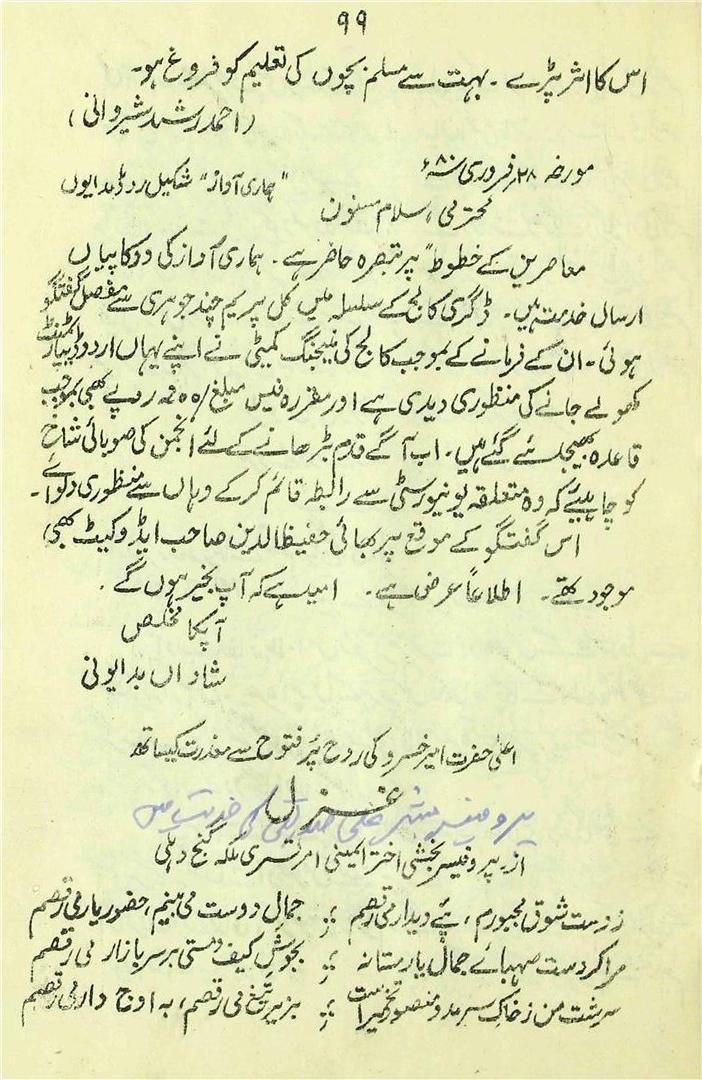 ۹۹
اس کا اثر پڑے ۔ بہت سے مسلم بچوں کی تعلیم کو فروغ ہو۔
(احمد رشید شیروانی)
مورخہ ۲۸ فروری سنہ ۸۰ء
"ہماری آواز" شکیل روڈ بدایوں
محترمی، سلام مسنون
معاصرین کے خطوط" پر تبصرہ حاضر ہے ۔ ہماری آواز کی دو کاپیاں
ارسال خدمت ہیں۔ ڈگری کالج کے سلسلہ میں کل پریم چند جوہری سے مفصل گفتگو
ہوئی۔ ان کے فرمانے کے بموجب کالج کی منیجنگ کمیٹی نے اپنے یہاں اردو ڈپیارٹمنٹ
کھولے جانے کی منظوری دیدی ہے اور مقررہ فیس مبلغ روپے بھی بموجب
قاعدہ بھیجدئے گئے ہیں۔ اب آگے قدم بڑھانے کے لئے انجمن کی صوبائی شاخ
کو چاہیئے کہ وہ متعلقہ یونیورسٹی سے رابطہ قائم کرکے وہاں سے منظوری دلوائے۔
اس گفتگو کے موقع پر بھائی حفیظ الدین صاحب ایڈوکیٹ بھی
موجود تھے۔ اطلاعاً عرض ہے۔ امید ہے کہ آپ بخیر ہوں گے ۔
آپکا مخلص
شاداں بدایونی
اعلیٰ حضرت امیر خسرو کی روح پُر فتوح سے معذرت کیساتھ
غزل
پروفیسر بشیر علی صدیقی کی خدمت میں
از۔ پروفیسر بخشی اختر امینی امرتسری بلکہ گنج دہلی
زدست شوق مجبورم، پئے دیدار می رقصم ؛ جمالِ دوست می بینم، حضورِ یار می رقصم
مرا کردست صہبائے جمالِ یار مستانہ ؛ بجوشِ کیف ومستی برسرِ بازار می رقصم
سرشت من زخاکِ سرمد و منصور تخمیر است ؛ بزیرِ تیغ می رقصم، بہ اوج دار می رقصم